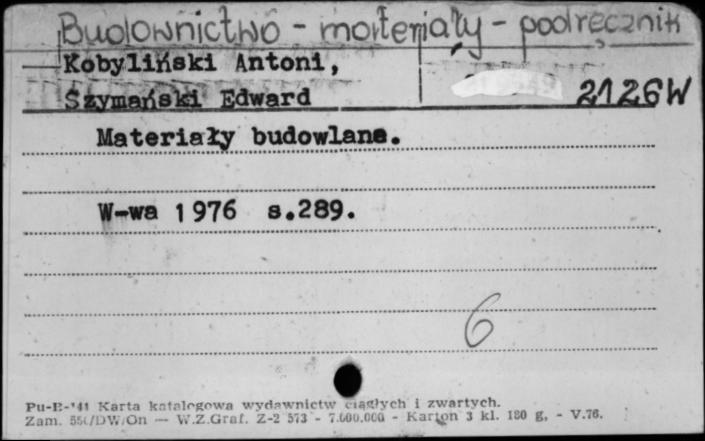 Budownictwo - materiały - podręcznik
Kobyliński Antoni,
Szymański Edward
2126W
Materiały budowlane.
W-wa 1976 s.289.
6
Karta katalogowa wydawnictw ciągłych i zwartych.
Zam. W.Z.Graf. Z-2 573 - 7.000.000 - Karton 3 kl. 180 g, - V.76.